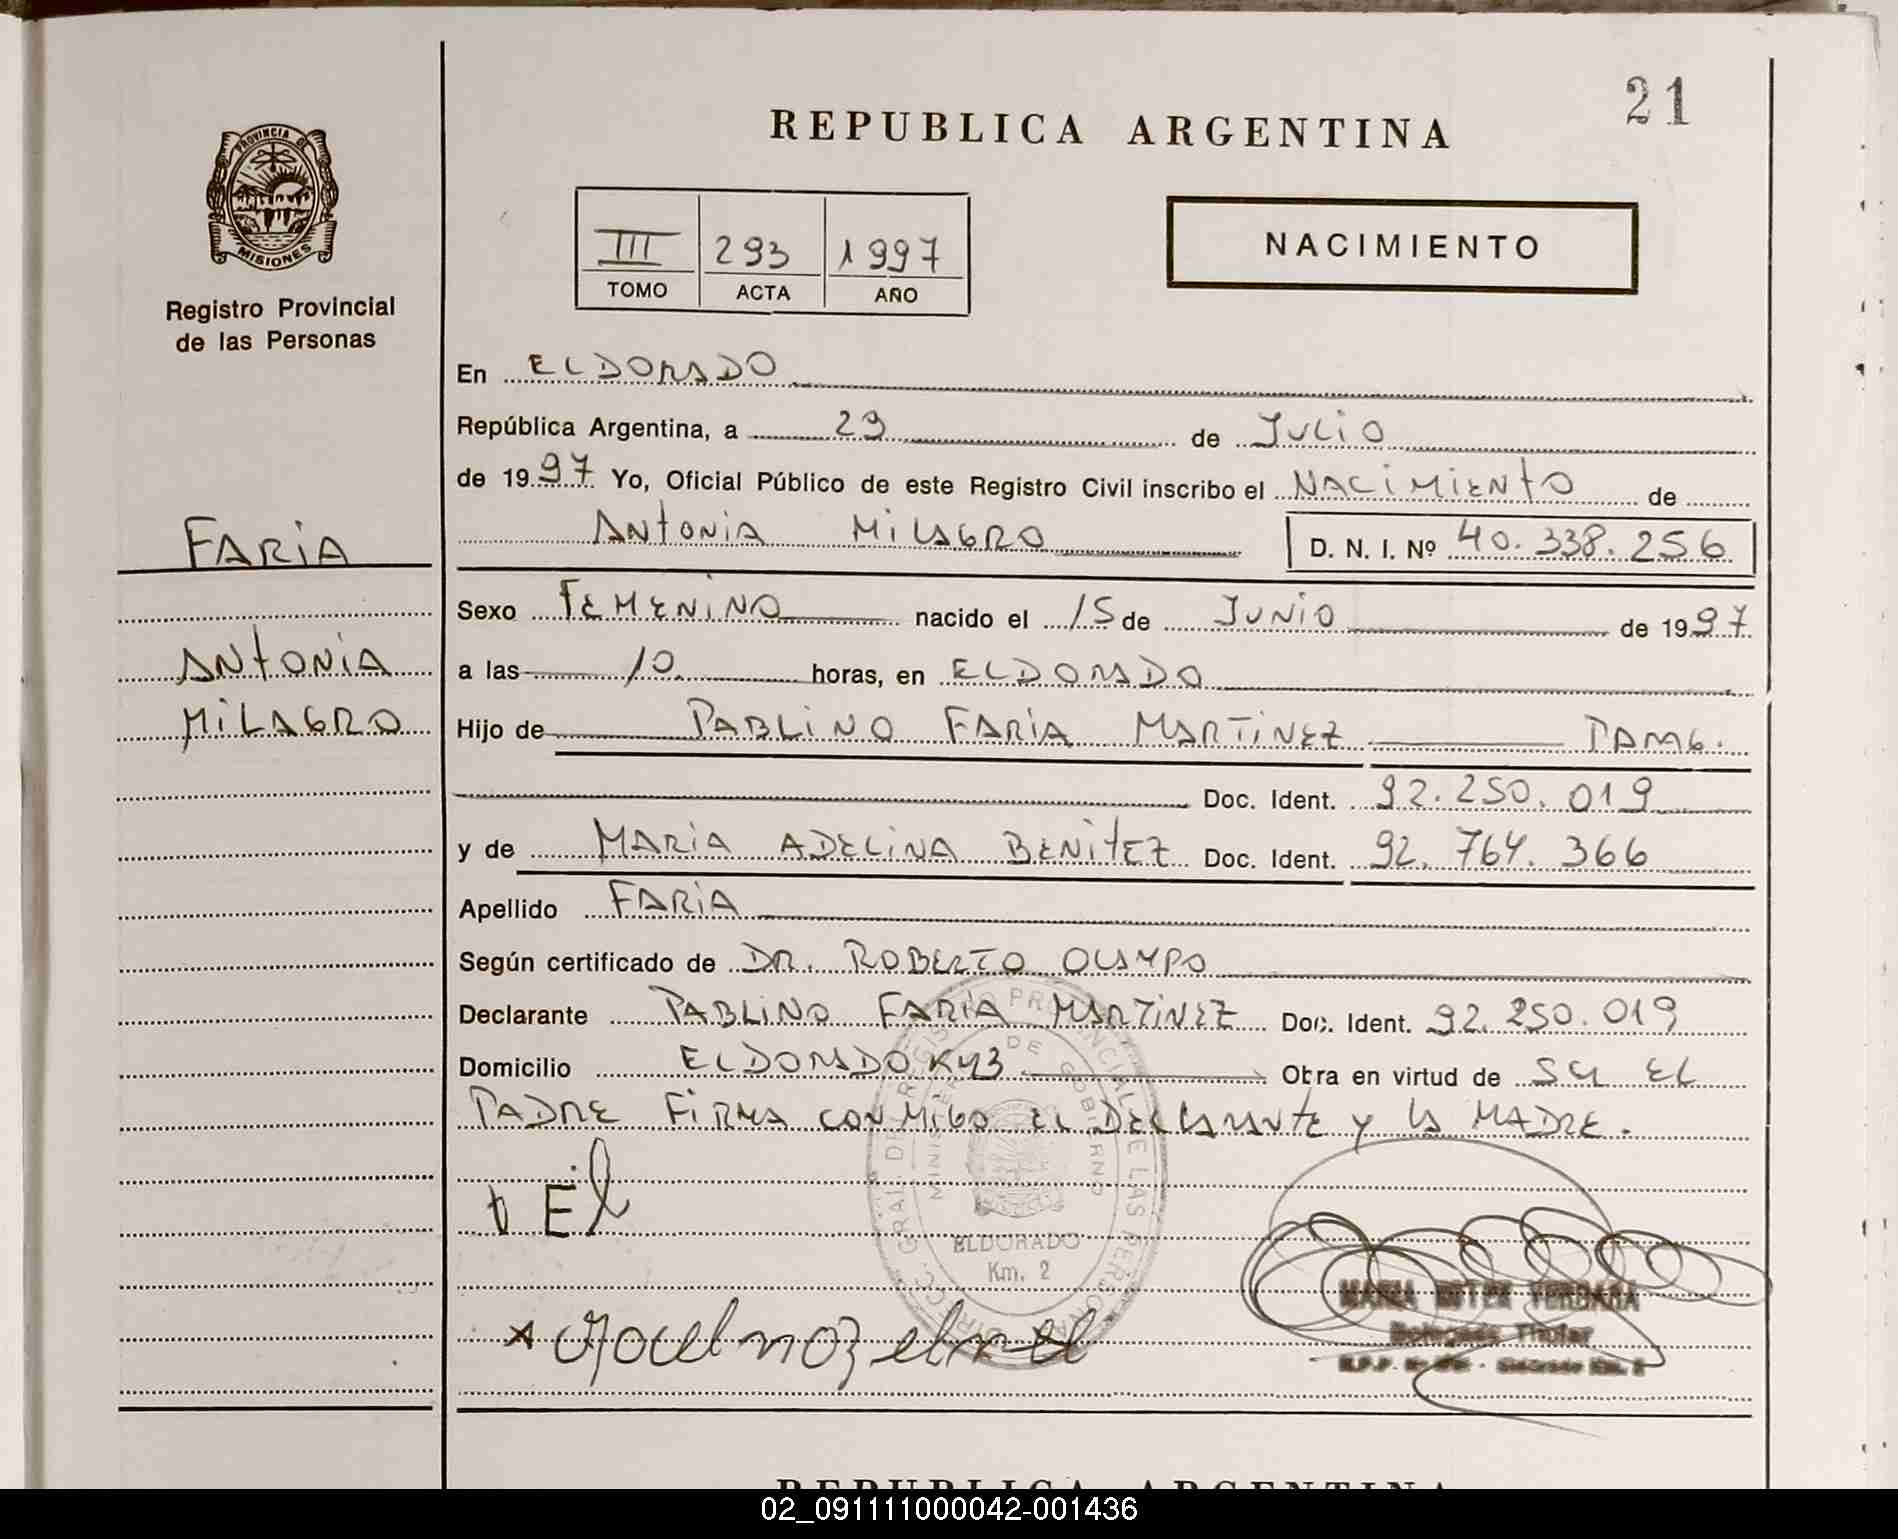 21
REPUBLICA ARGENTINA
PROVINCIA DE
MISIONES
Registro Provincial
de las Personas
III 293 1997
TOMO ACTA AÑO
NACIMIENTO
En ELDORADO
República Argentina, a 29 de JULIO
de 1997 Yo, Oficial Público de este Registro Civil inscribo el NACIMIENTO de
FARIA
ANTONIA MILAGRO D. N. I. Nº 40.338.256
Sexo FEMENINO nacido el 15 de JUNIO de 1997
ANTONIA
a las 10 horas, en ELDORADO
MILAGRO
Hijo de PABLINO FARIA MARTINEZ
Doc. Ident. 92.250.019
y de MARIA ADELINA BENITEZ Doc. Ident. 92.764.366
Apellido FARIA
Según certificado de DR. ROBERTO OCAMPO
Declarante PABLINO FARIA MARTINEZ Doc. Ident. 92.250.019
Domicilio ELDORADO KM3 Obra en virtud de SU EL
PADRE FIRMA CONMIGO EL DECLARANTE Y LA MADRE.
ELDORADO
Km. 2
REPUBLICA ARGENTINA
02_091111000042-001436